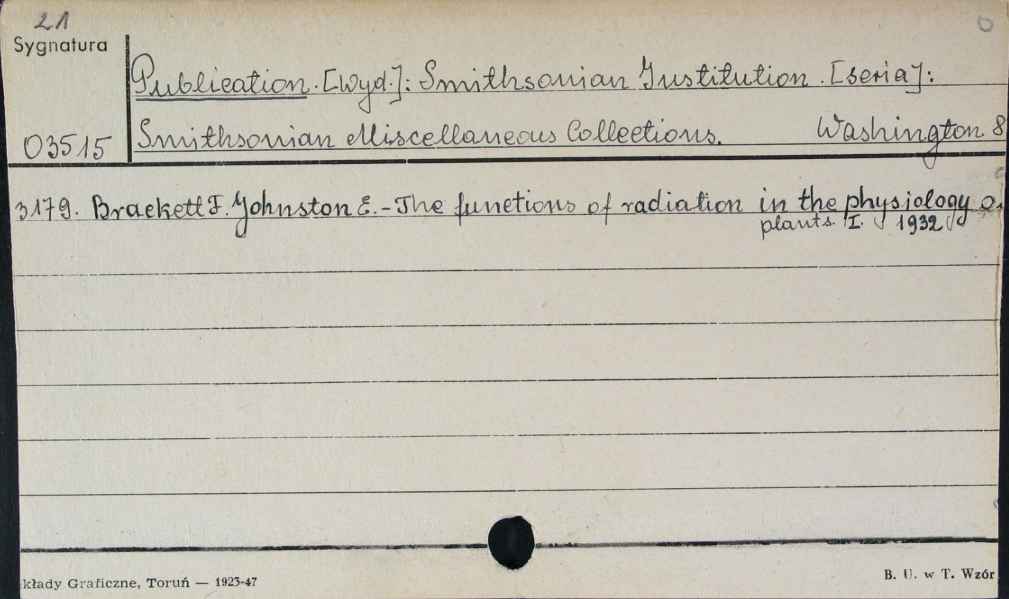 21
Sygnatura
Publication. [Wyd.]: Smithsonian Institution. [seria]:
03515 Smithsonian Miscellaneous Collections. Washington 8
3179. Brackett F. Johnston E. - The functions of radiation in the physiology o
plants. I. 1932
kłady Graficzne, Toruń — 1923-47
B. U. w T. Wzór